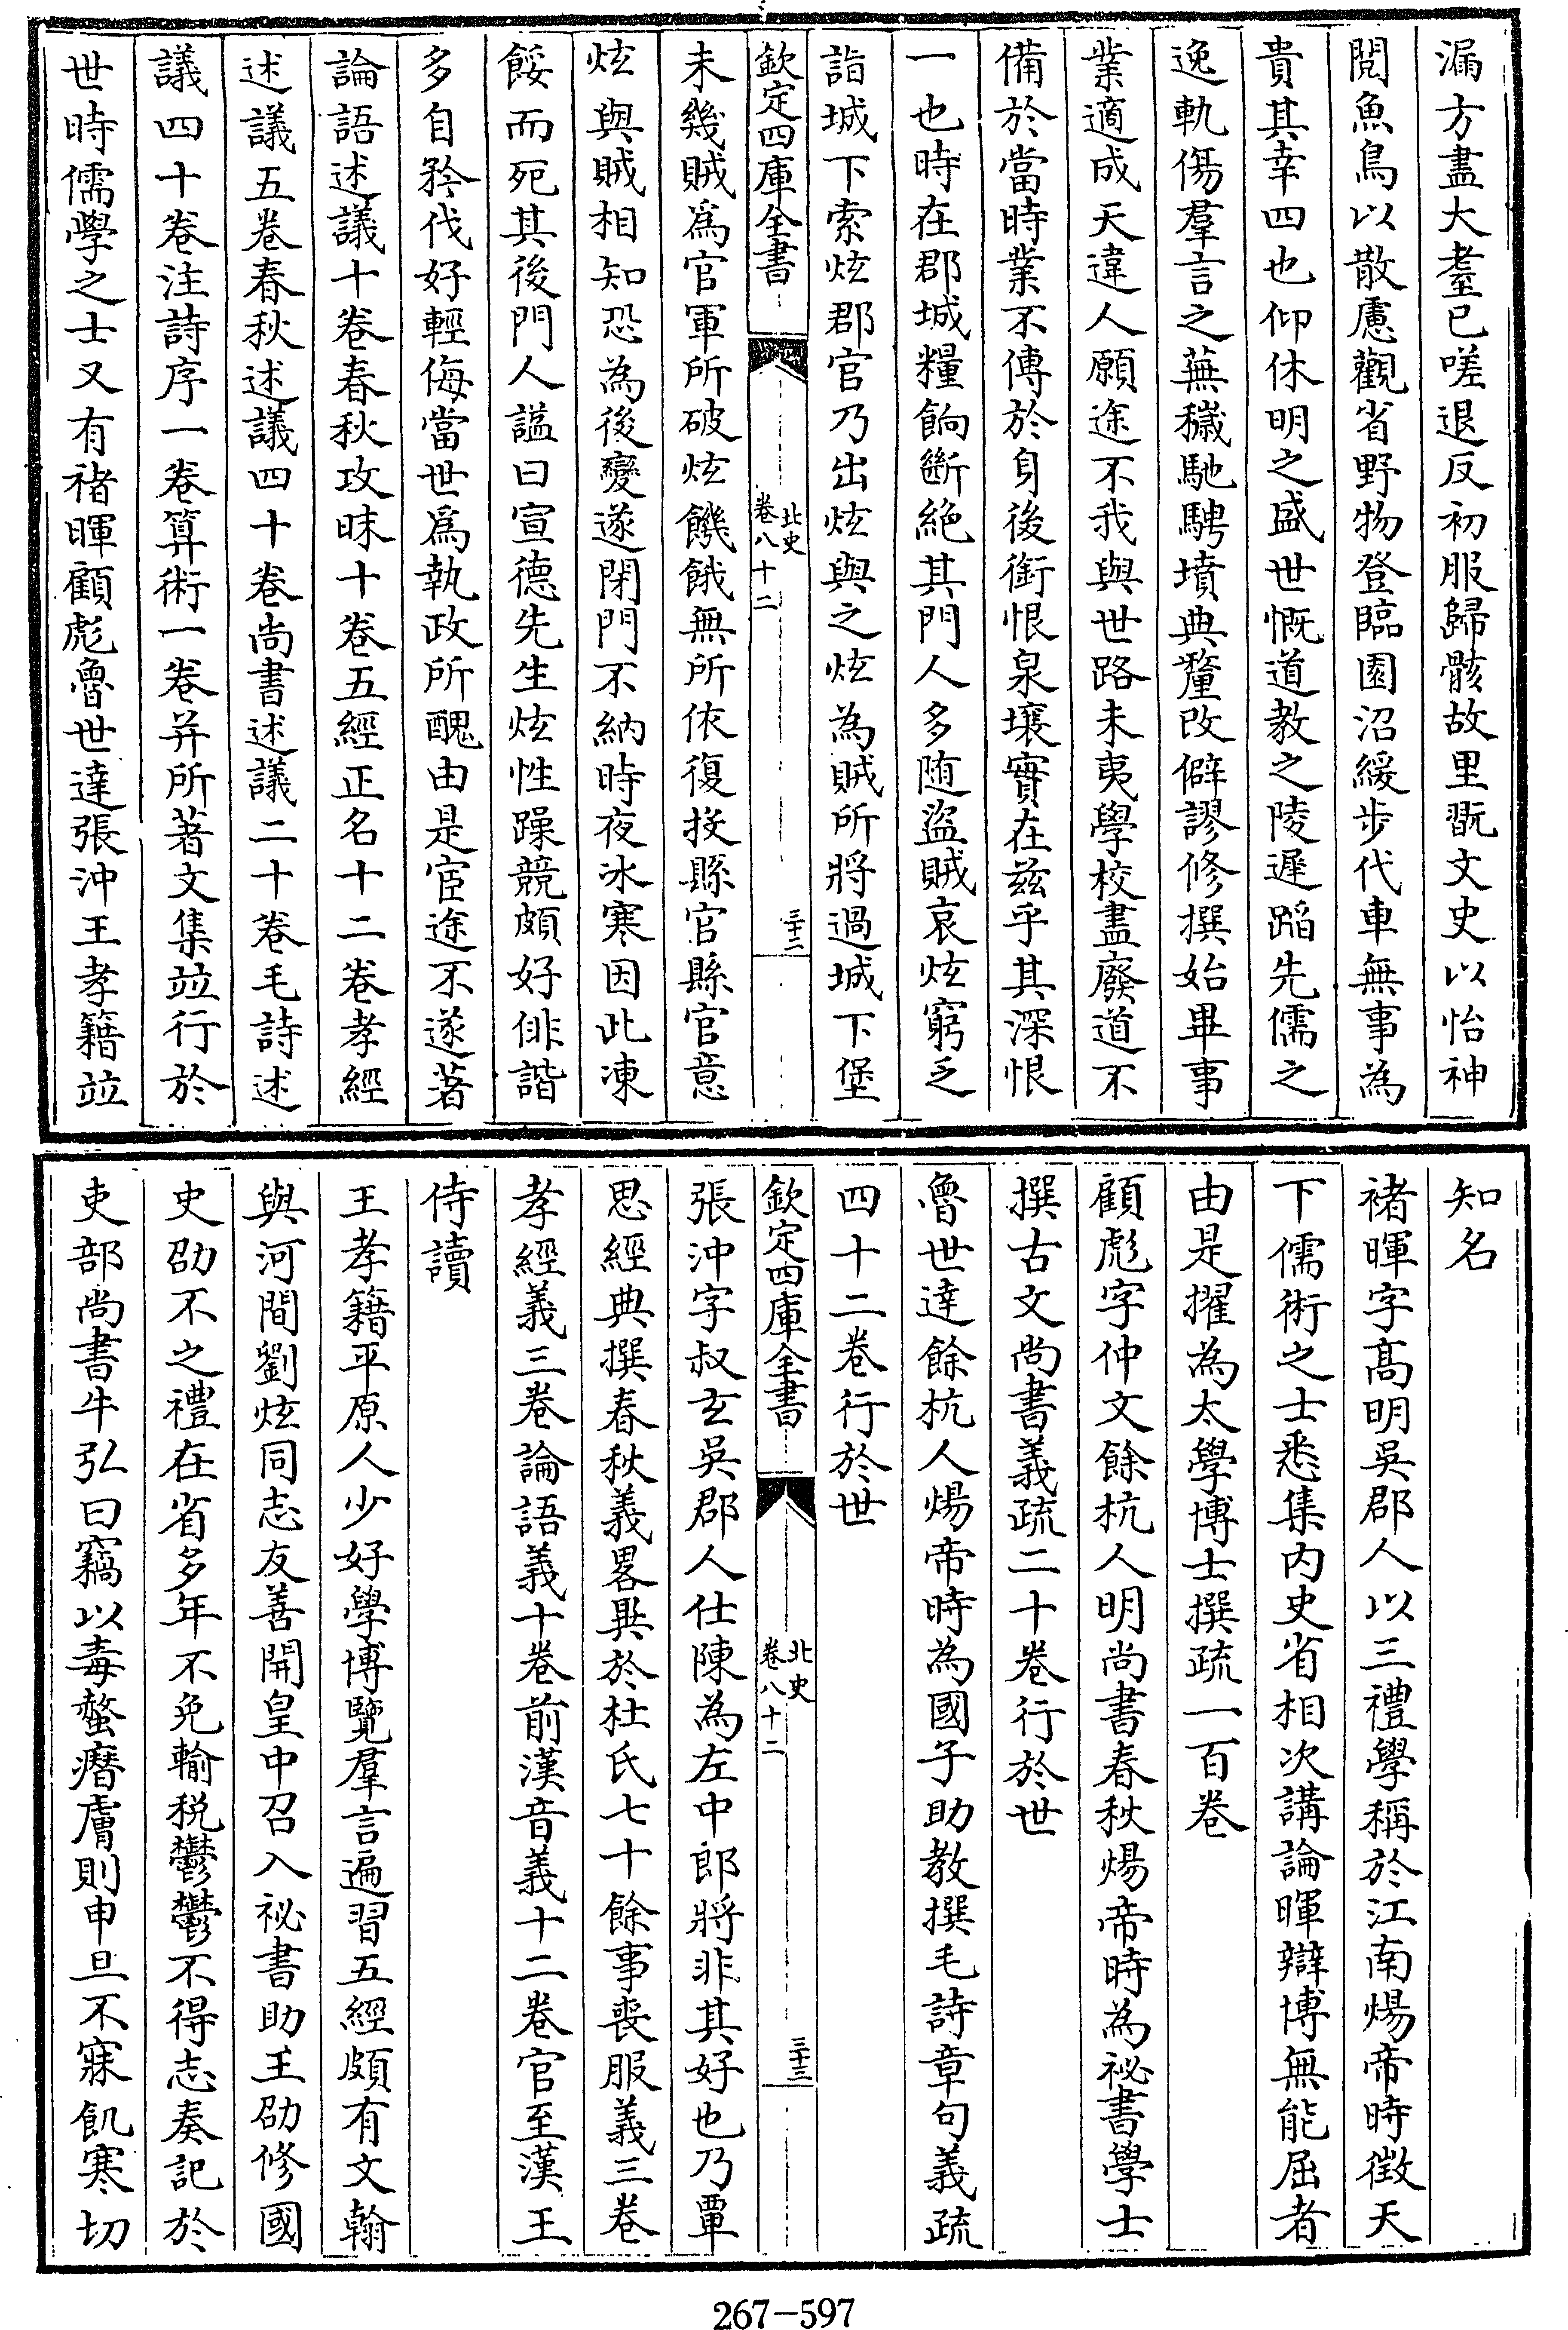 漏方盡大耋已嗟退反初服歸骸故里翫文史以怡神
閱魚鳥以散慮觀省野物登臨園沼緩步代車無事為
貴其幸四也仰休明之盛世慨道教之陵遲蹈先儒之
逸軌傷羣言之蕪穢馳騁墳典釐改僻謬修撰始畢事
業適成天違人願途不我與世路未夷學校盡廢道不
備於當時業不傳於身後銜恨泉壤實在兹乎其深恨
一也時在郡城糧餉斷絶其門人多随盜賊哀炫窮乏
詣城下索炫郡官乃出炫與之炫為賊所將過城下堡
欽定四庫全書
北史
卷八十二
三十二
未幾賊爲官軍所破炫饑餓無所依復投縣官縣官意
炫與賊相知恐為後變遂閉門不納時夜冰寒因此凍
餒而死其後門人謚曰宣德先生炫性躁競頗好俳諧
多自矜伐好輕侮當世爲執政所醜由是宦途不遂著
論語述議十卷春秋攻昧十卷五經正名十二卷孝經
述議五卷春秋述議四十卷尚書述議二十卷毛詩述
議四十卷注詩序一卷算術一卷并所著文集竝行於
世時儒學之士又有褚暉顧彪魯世達張沖王孝籍竝
知名
褚暉字髙明吳郡人以三禮學稱於江南煬帝時徵天
下儒術之士悉集内史省相次講論暉辯博無能屈者
由是擢為太學博士撰疏一百卷
顧彪字仲文餘杭人明尚書春秋煬帝時為祕書學士
撰古文尚書義疏二十卷行於世
魯世達餘杭人煬帝時為國子助教撰毛詩章句義疏
四十二卷行於世
欽定四庫全書
北史
卷八十二
三十三
張沖字叔玄吳郡人仕陳為左中郎將非其好也乃覃
思經典撰春秋義畧異於杜氏七十餘事喪服義三卷
孝經義三卷論語義十卷前漢音義十二卷官至漢王
侍讀
王孝籍平原人少好學博覽羣言遍習五經頗有文翰
與河間劉炫同志友善開皇中召入祕書助王劭修國
史劭不之禮在省多年不免輸税鬱鬱不得志奏記於
吏部尚書牛弘曰竊以毒螫㿊膚則申旦不寐飢寒切
267-597